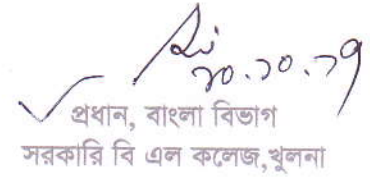 ২০.১০.১৭
প্রধান, বাংলা বিভাগ
সরকারি বি এল কলেজ,খুলনা